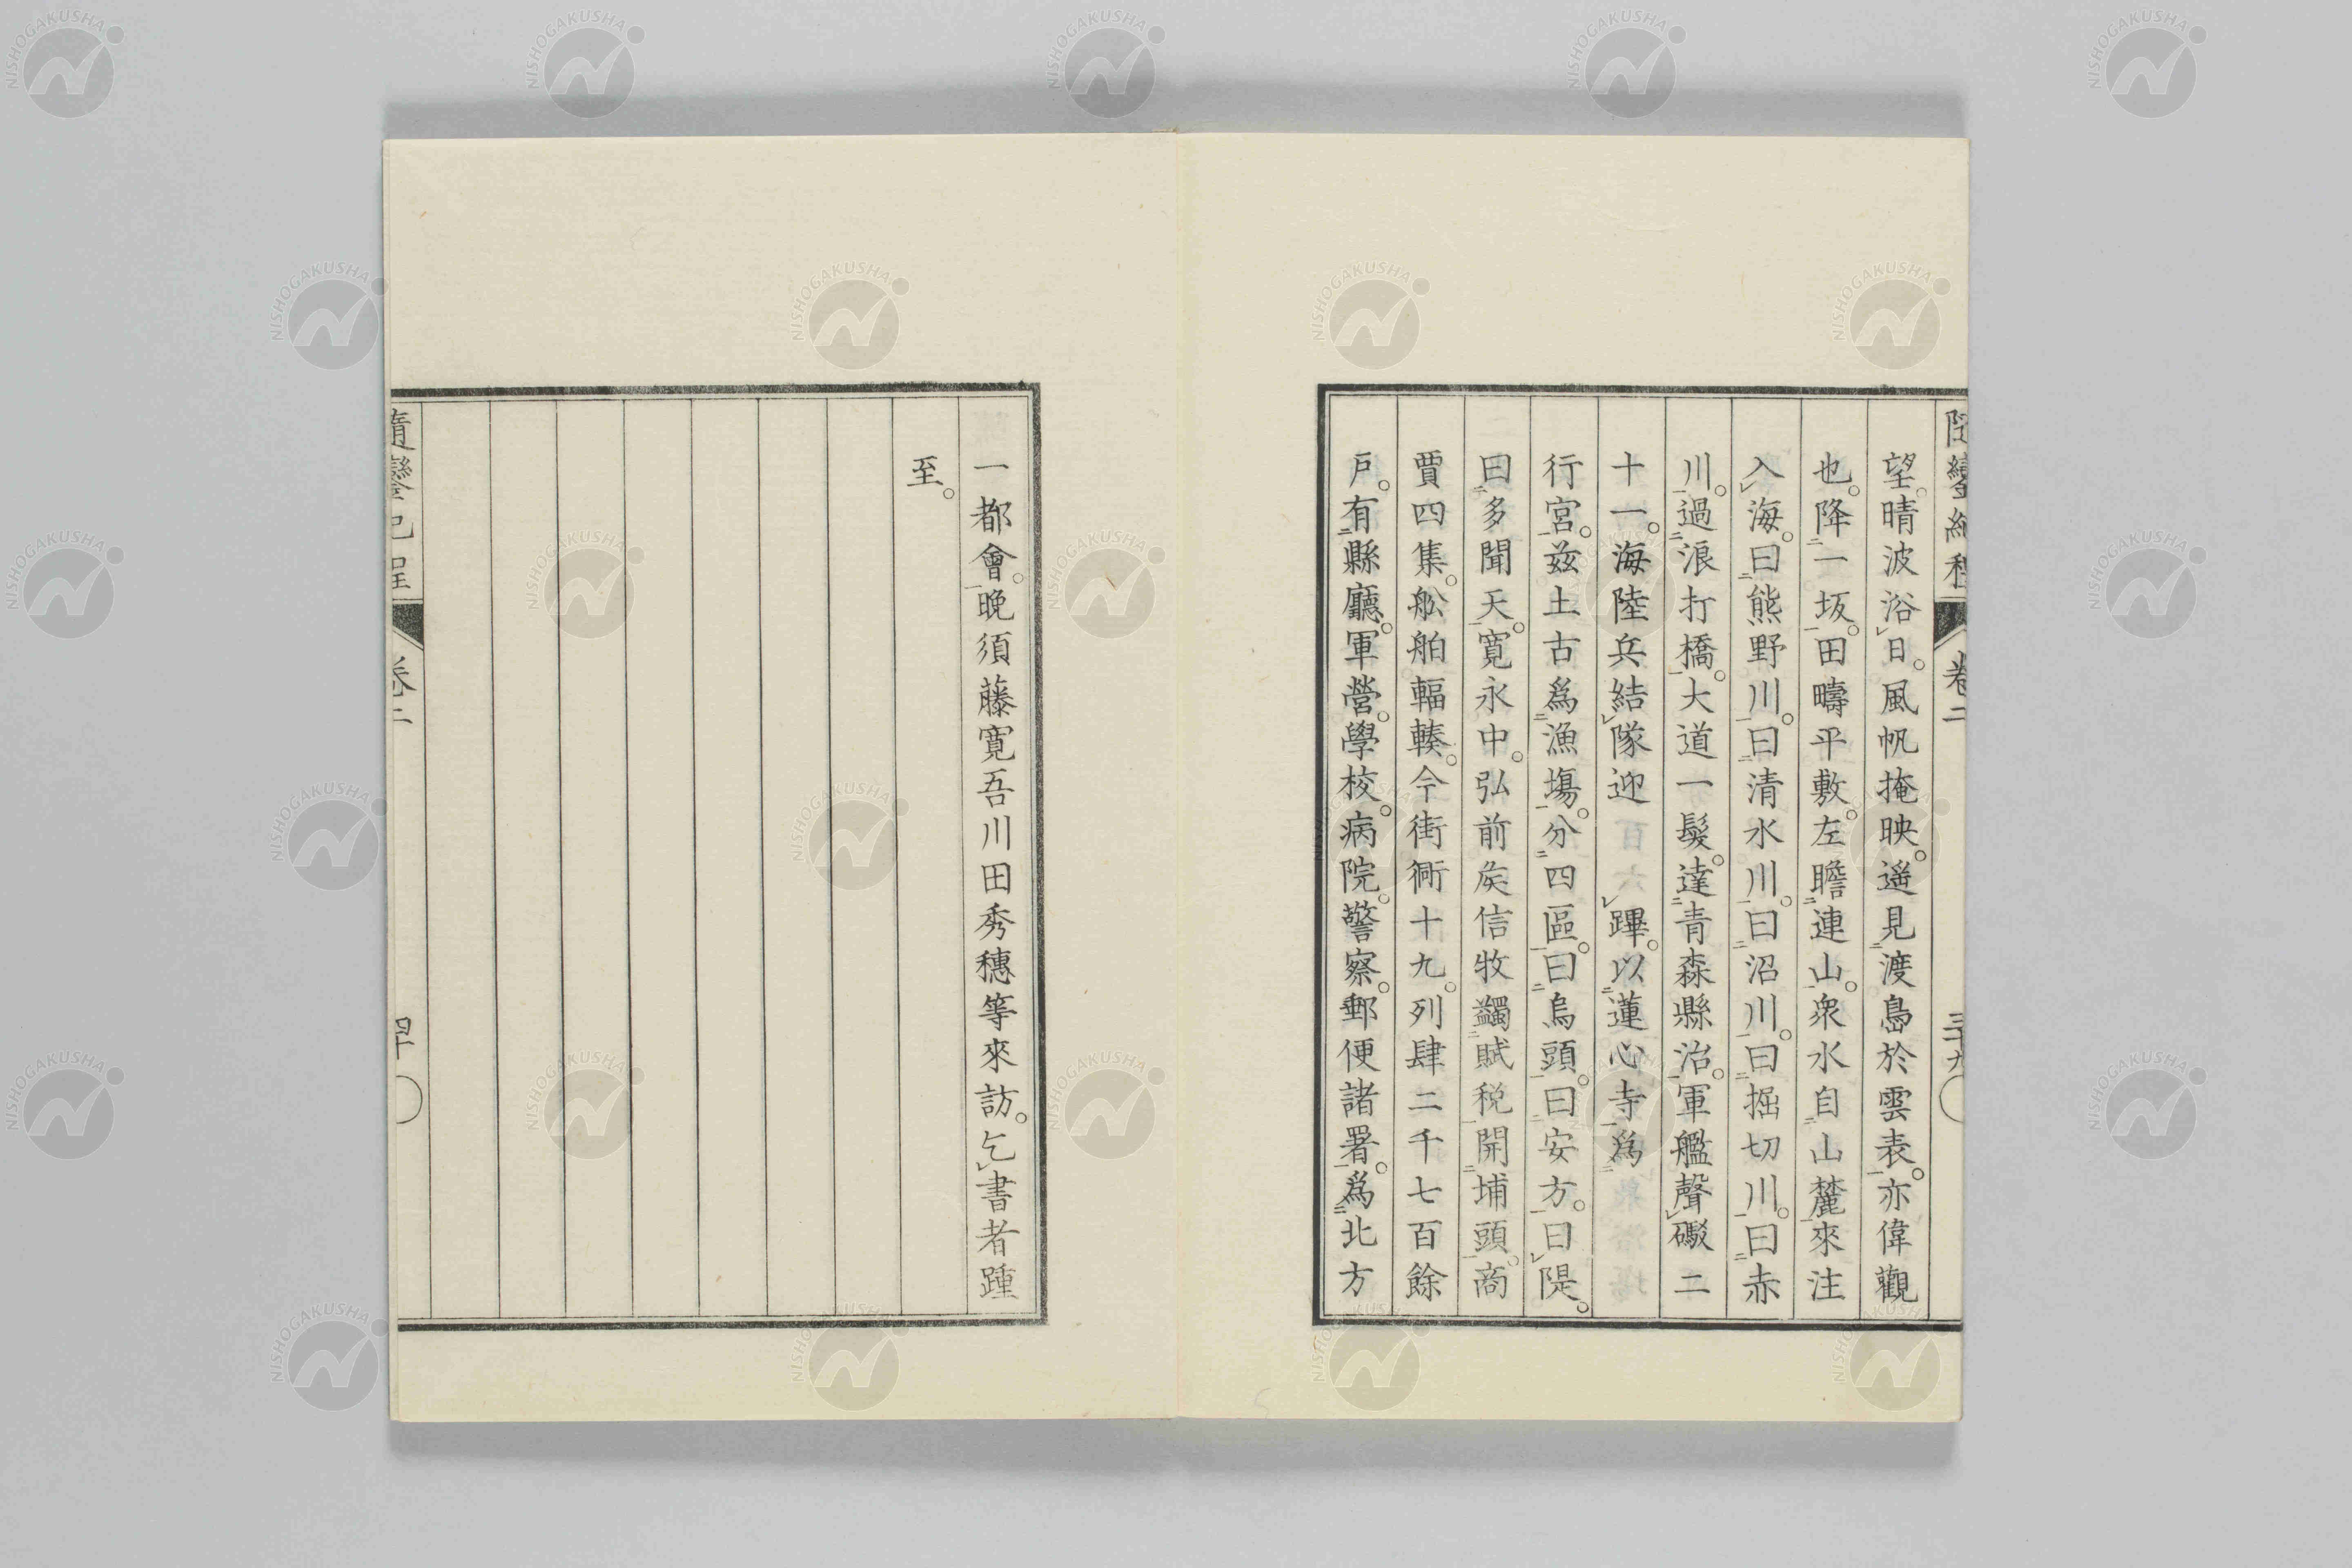 望。晴波浴日。風帆掩映。遥見渡島於雲表。亦偉觀
也。降一坂。田疇平敷。左瞻連山。衆水自山麓來注
入海。曰熊野川。曰清水川。曰沼川。曰掘切川。曰赤
川。過浪打橋。大道一髮。達青森縣治。軍艦聲礮二
十一。海陸兵結隊迎蹕。以蓮心寺爲
行宮。玆土古爲漁塲。分四區。曰烏頭。曰安方。曰隄。
曰多聞天。寛永中。弘前矦信牧蠲賦税。開埔頭。商
賈四集。舩舶輻輳。今街衕十九。列肆二千七百餘
戸。有縣廳。軍營。學校。病院。警察。郵便諸署。爲北方
一都會。晩須藤寛吾川田秀穗等來訪。乞書者踵
至。
隨鑾紀程 卷二